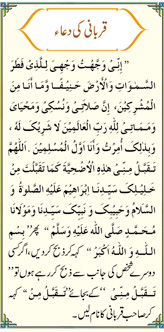 قربانی کی دعاء
” اِنِّیْ وَجَّهْتُ وَجْهِیَ لِلَّذِیْ فَطَرَ
السَّمٰوٰتِ وَالْاَرْضَ حَنِیْفًا وَّمَا اَنَا مِنَ
الْمُشْرِکِیْنَ، اِنَّ صَلَاتِیْ وَنُسُکِیْ وَمَحْیَایَ
وَمَمَاتِیْ لِلّٰهِ رَبِّ الْعَالَمِیْنَ لَا شَرِیْکَ لَهٗ ،
وَبِذٰلِکَ اُمِرْتُ وَاَنَا اَوَّلُ الْمُسْلِمِیْنَ۔ اَللّٰهُمَّ
تَقَبَّلْ مِنِّیْ هٰذِهِ الْاُضْحِیَّةَ کَمَا تَقَبَّلْتَ مِنْ
خَلِیْلِکَ سَیِّدِنَا اِبْرَاهِیْمَ عَلَیْهِ الصَّلٰوةُ وَ
السَّلَامُ وَحَبِیْبِکَ وَ نَبِیِّکَ سَیِّدِنَا وَمَوْلَانَا
مُحَمَّدٍ صَلَّی اللّٰه عَلَیْهِ وَسَلَّمَ “ پھر ” بِسْمِ
اللّٰهِ وَ اللّٰهُ اَکْبَرُ “ کہہ کر ذبح کردیں، اگر کسی
دوسرے شخص کی جانب سے ذبح کررہے ہوں تو ”
تَقَبَّلْ مِنِّیْ “ کے بجائے ” تَقَبَّلْ مِنْ “ کہہ
کر صاحب قربانی کا نام لیں۔